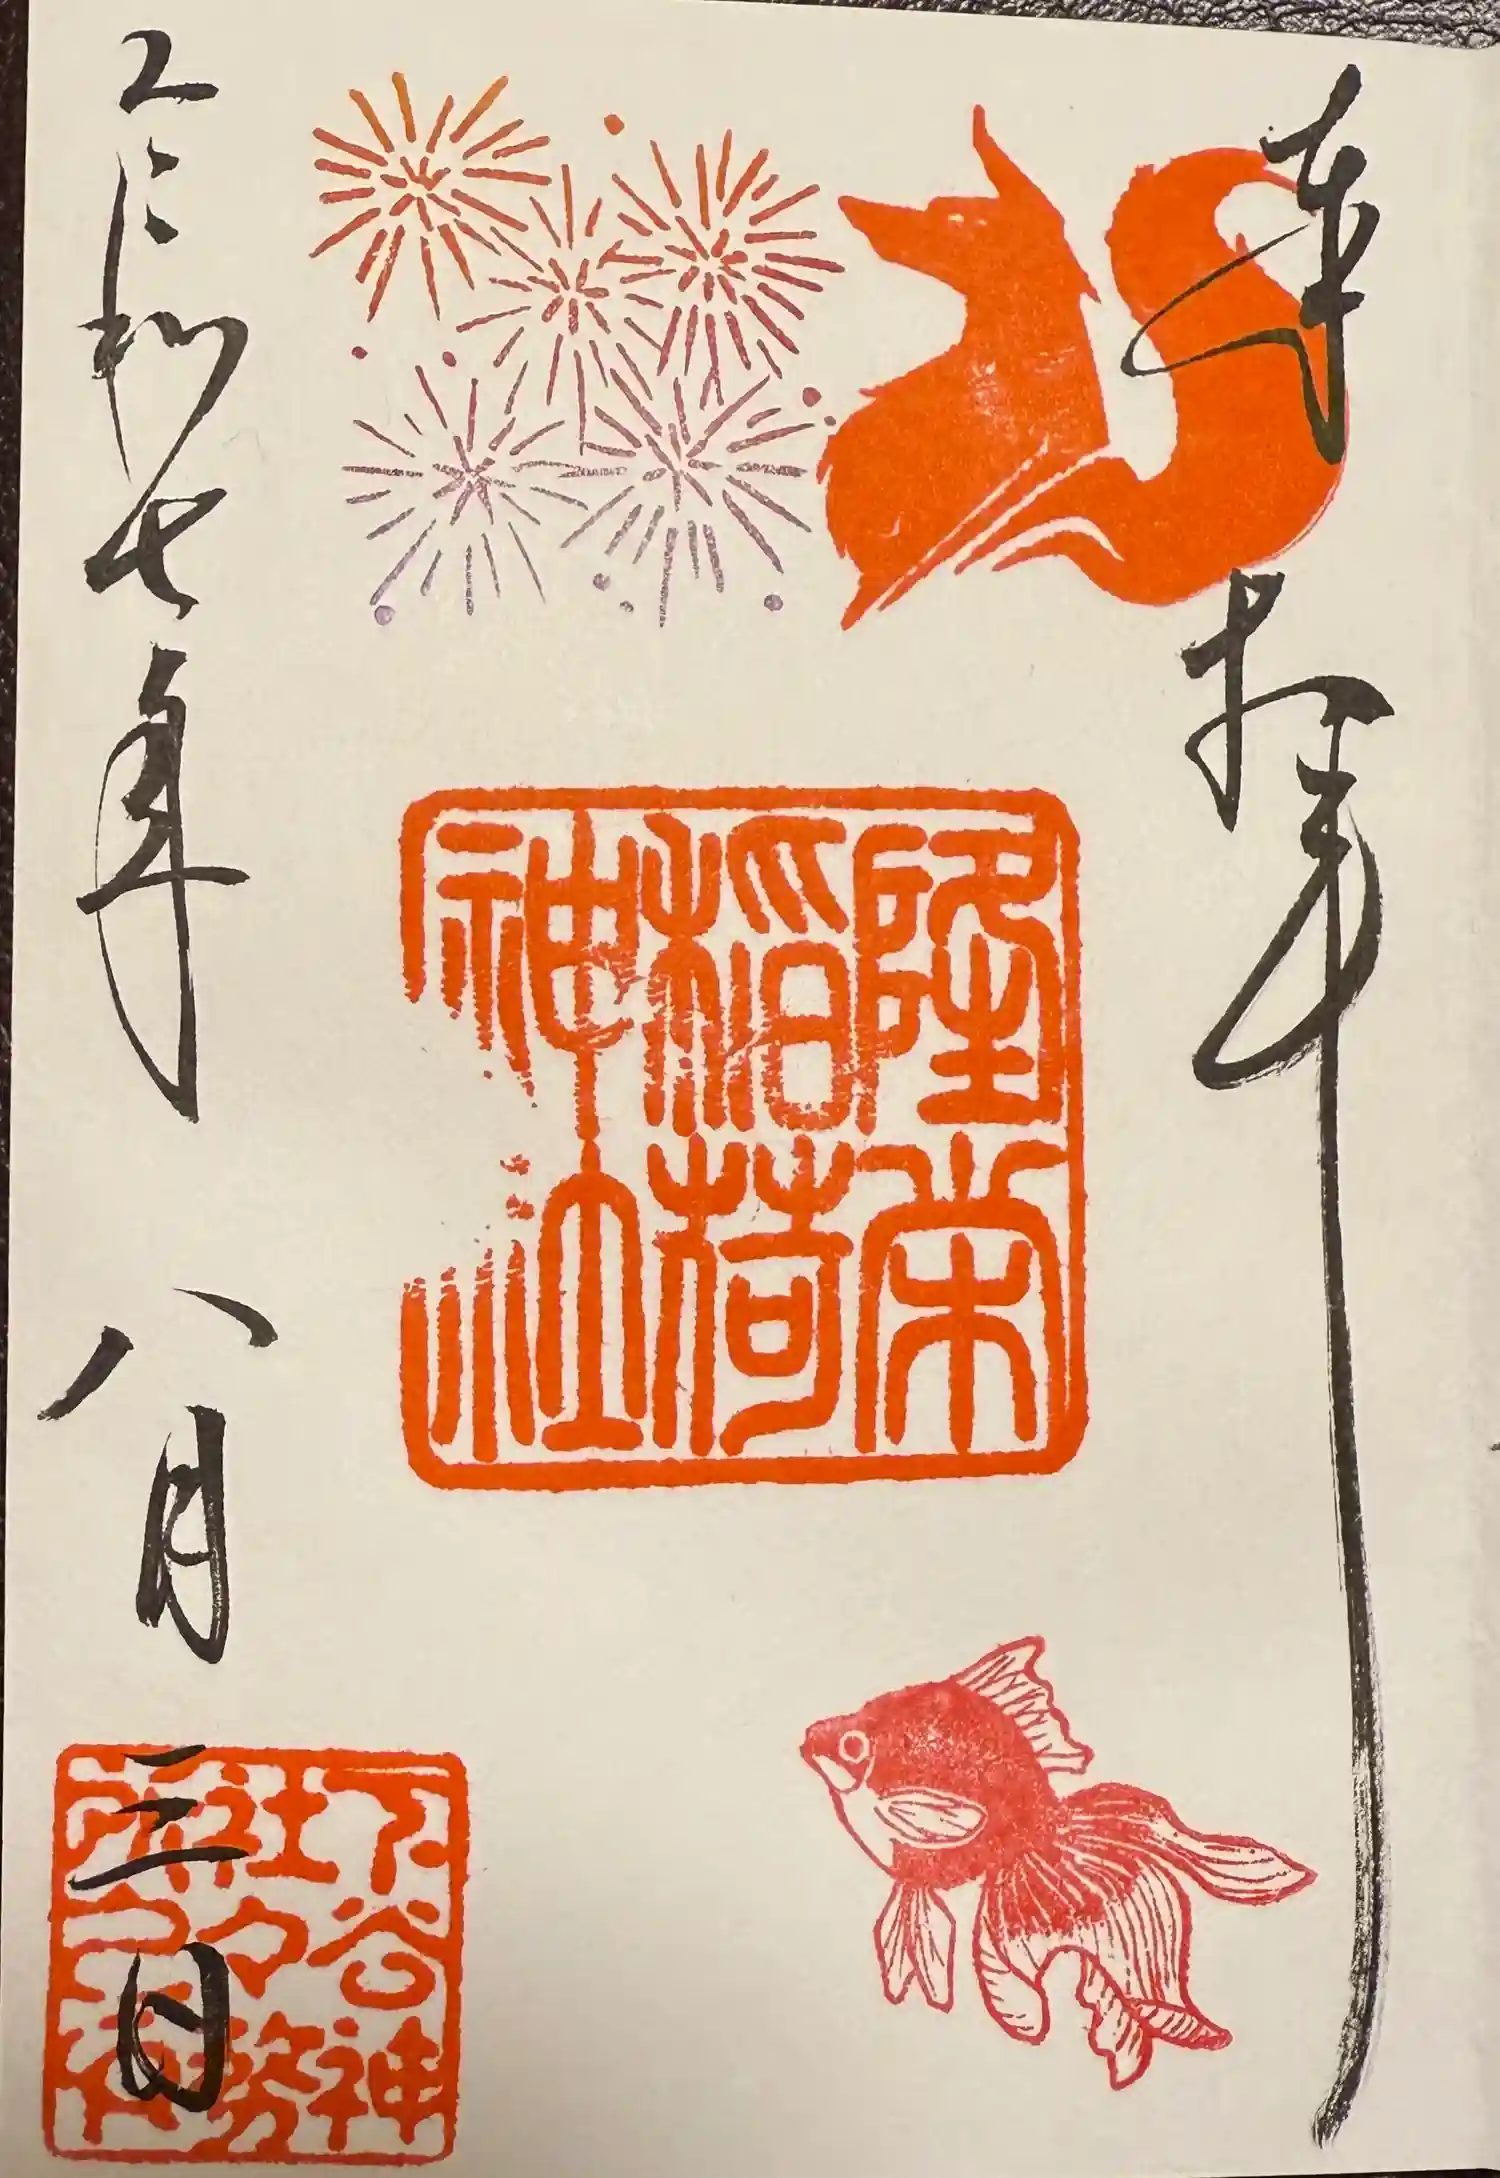 奉拝
隆栄
稲荷
神社
令和七年八月三日
下谷神
社々務
所之印